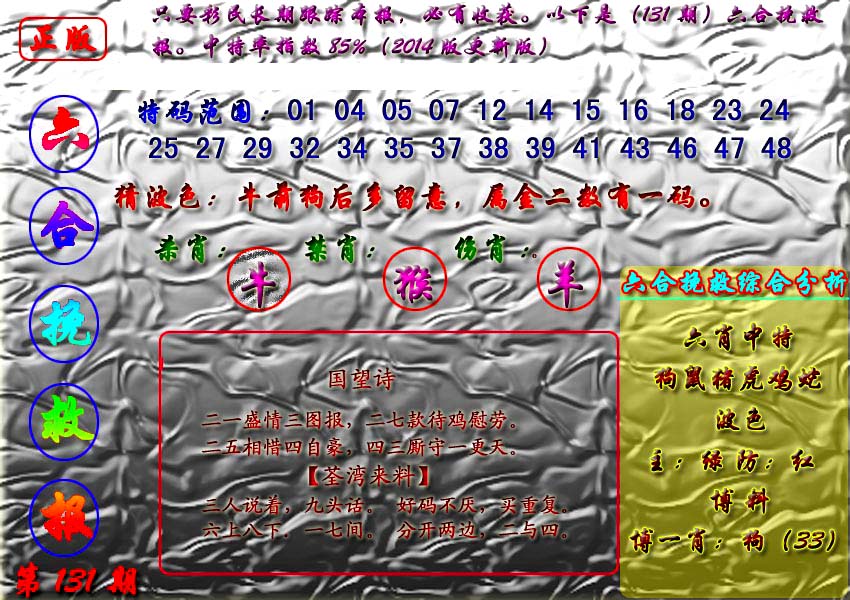 正版
只要彩民长期跟踪本报，必有收获。以下是（131期）六合挽救
报。中特率指数85%（2014版更新版）
六合挽救报
第131期
特码范围：01 04 05 07 12 14 15 16 18 23 24
25 27 29 32 34 35 37 38 39 41 43 46 47 48
猜波色：牛前狗后多留意，属金二数有一码。
杀肖：牛 禁肖：猴 伤肖：羊
国望诗
二一盛情三图报，二七款待鸡慰劳。
二五相惜四自豪，四三厮守一更天。
【荃湾来料】
三人说着，九头话。 好码不厌，买重复。
六上八下．一七间。 分开两边，二与四。
六合挽救综合分析
六肖中特
狗鼠猪虎鸡蛇
波色
主：绿防：红
博料
博一肖：狗（33）